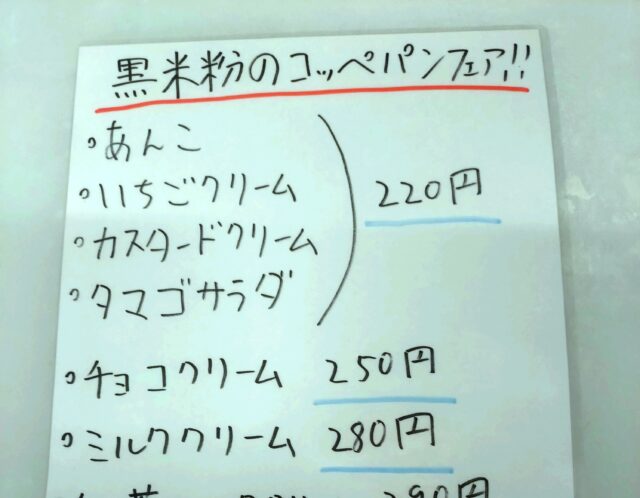 黒米粉のコッペパンフェア!!
・あんこ
・いちごクリーム
・カスタードクリーム
・タマゴサラダ
220円
・チョコクリーム 250円
・ミルククリーム 280円